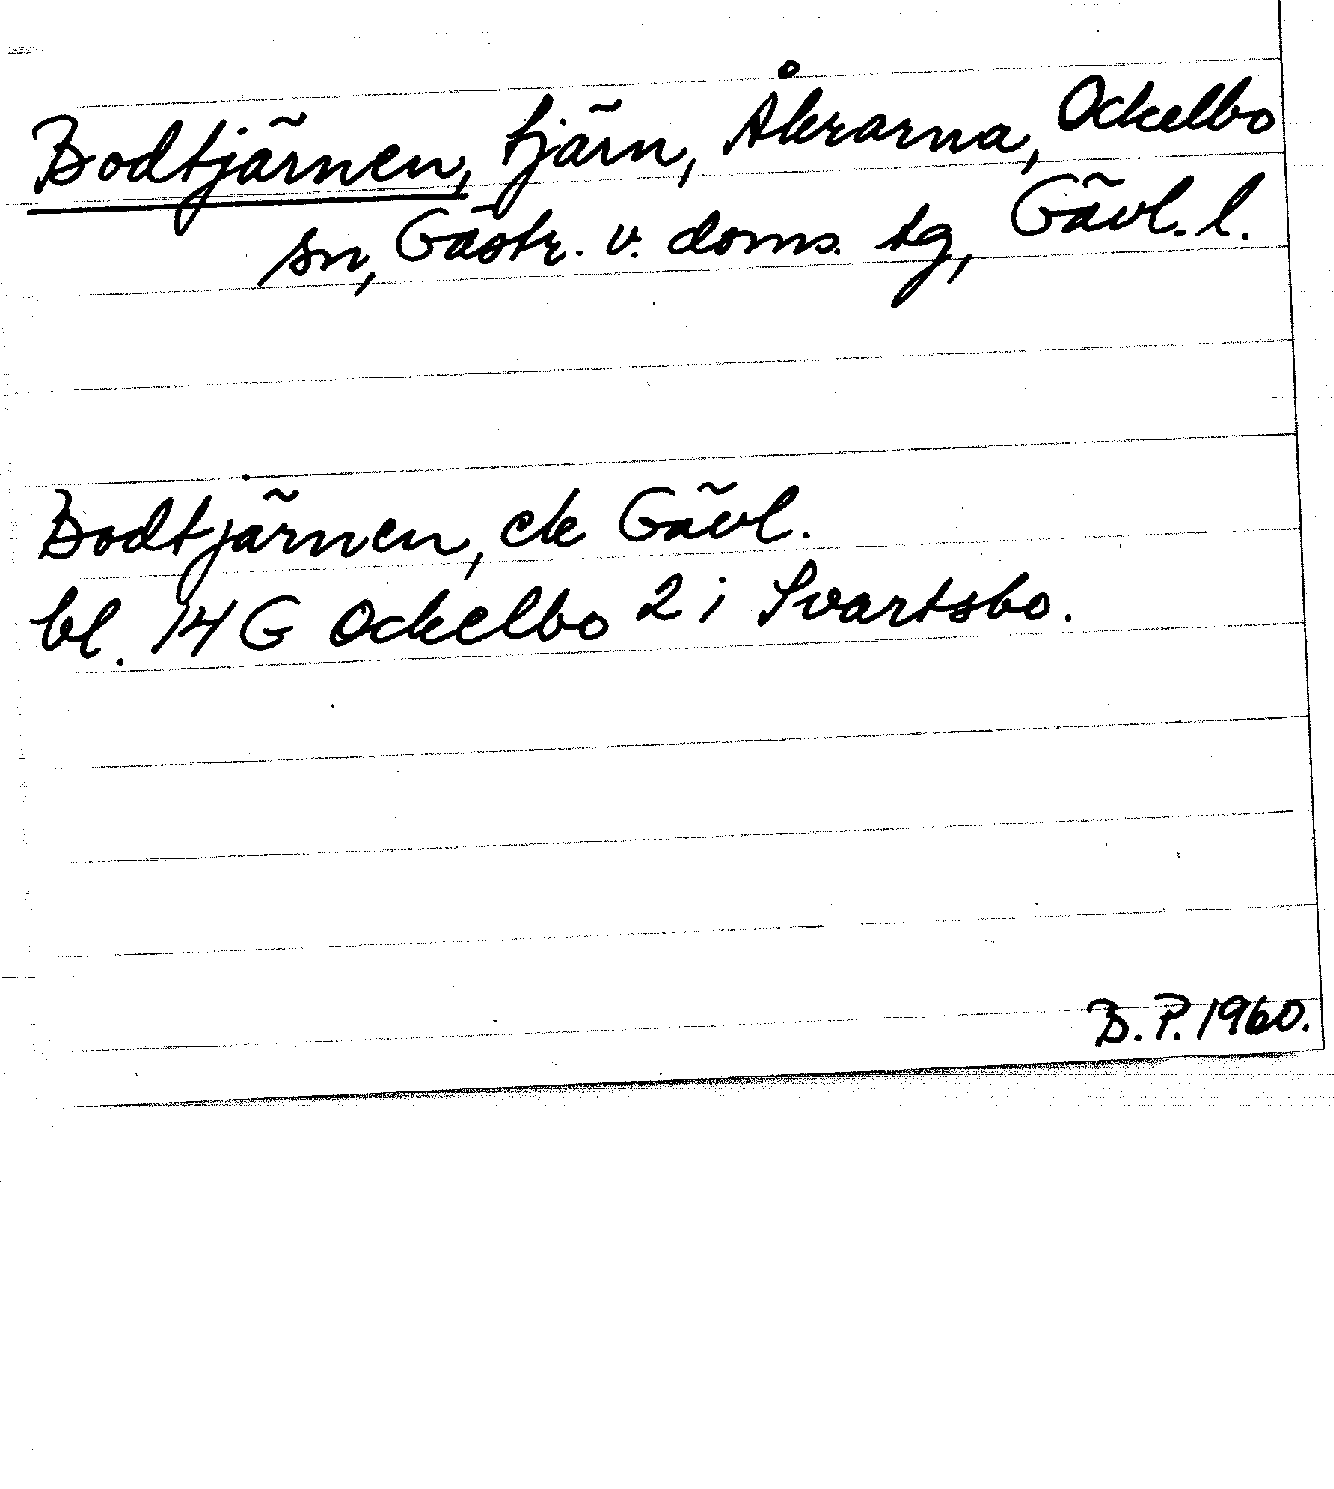 Bodtjärnen, tjärn, Åkrarna, Ockelbo
sn, Gästr. v. doms. tg, Gävl. l.
Bodtjärnen, ek Gävl.
bl. 14 G Ockelbo 2 i Svartsbo.
B. P. 1960.